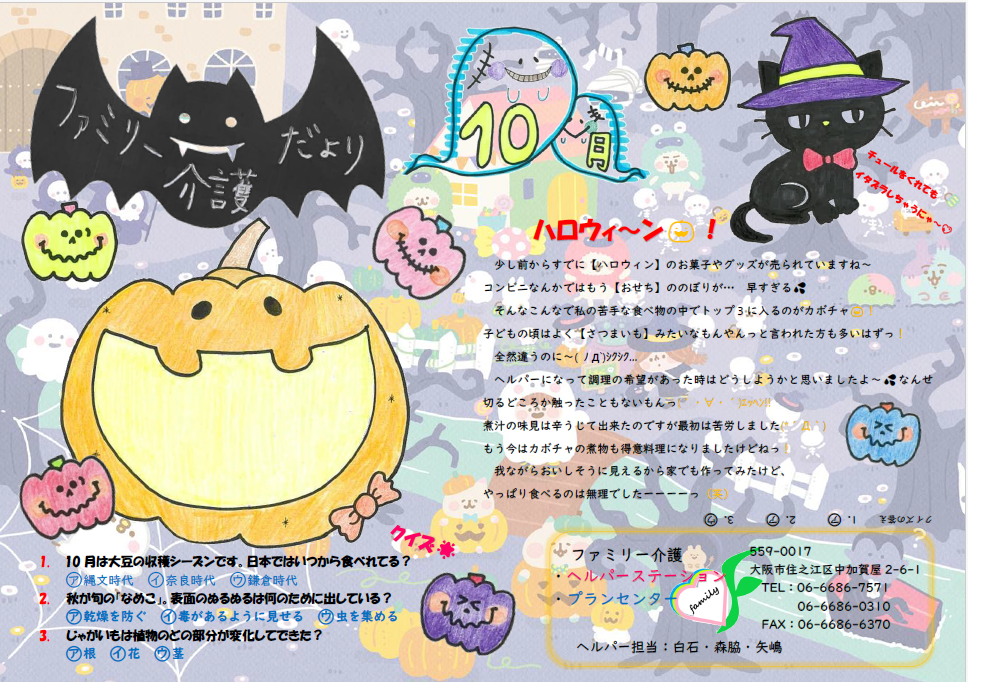 ファミリー
介護
だより
10
月
チュールをくれても
イタズラしちゃうにゃ～
ハロウィ～ン！
少し前からすでに【ハロウィン】のお菓子やグッズが売られていますね～
コンビニなんかではもう【おせち】ののぼりが… 早すぎる💦
そんなこんなで私の苦手な食べ物の中でトップ3に入るのがカボチャ！
子どもの頃はよく【さつまいも】みたいなもんやんっと言われた方も多いはずっ！
全然違うのに～(ﾉД`)ｼｸｼｸ…
ヘルパーになって調理の希望があった時はどうしようかと思いましたよ～💦なんせ
切るどころか触ったこともないもんっ
煮汁の味見は辛うじて出来たのですが最初は苦労しました
もう今はカボチャの煮物も得意料理になりましたけどねっ！
我ながらおいしそうに見えるから家でも作ってみたけど、
やっぱり食べるのは無理でしたーーーーっ（笑）
クイズの答え 1. ㋐ 2. ㋐ 3. ㋒
クイズ
1. 10月は大豆の収穫シーズンです。日本ではいつから食べれてる？
㋐縄文時代 ㋑奈良時代 ㋒鎌倉時代
2. 秋が旬の「なめこ」。表面のぬるぬるは何のために出している？
㋐乾燥を防ぐ ㋑毒があるように見せる ㋒虫を集める
3. じゃがいもは植物のどの部分が変化してできた？
㋐根 ㋑花 ㋒茎
ファミリー介護
・ヘルパーステーション
・プランセンター
family
559-0017
大阪市住之江区中加賀屋2-6-1
TEL：06-6686-7571
06-6686-0310
FAX：06-6686-6370
ヘルパー担当：白石・森脇・矢嶋